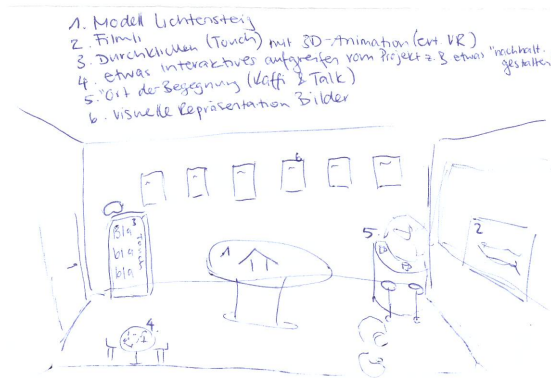 1. Modell Lichtensteig
2. Filmli
3. Durchklicken (Touch) mit 3D-Animation (evt VR)
4. etwas interaktives aufgreifen vom Projekt z.B etwas "nachhalt.
gestalten
5. "Ort der Begegnung (Kaffi & Talk)
6. visuelle Repräsentation Bilder
6
5.
2
3
Bla
bla
bla
1
4.